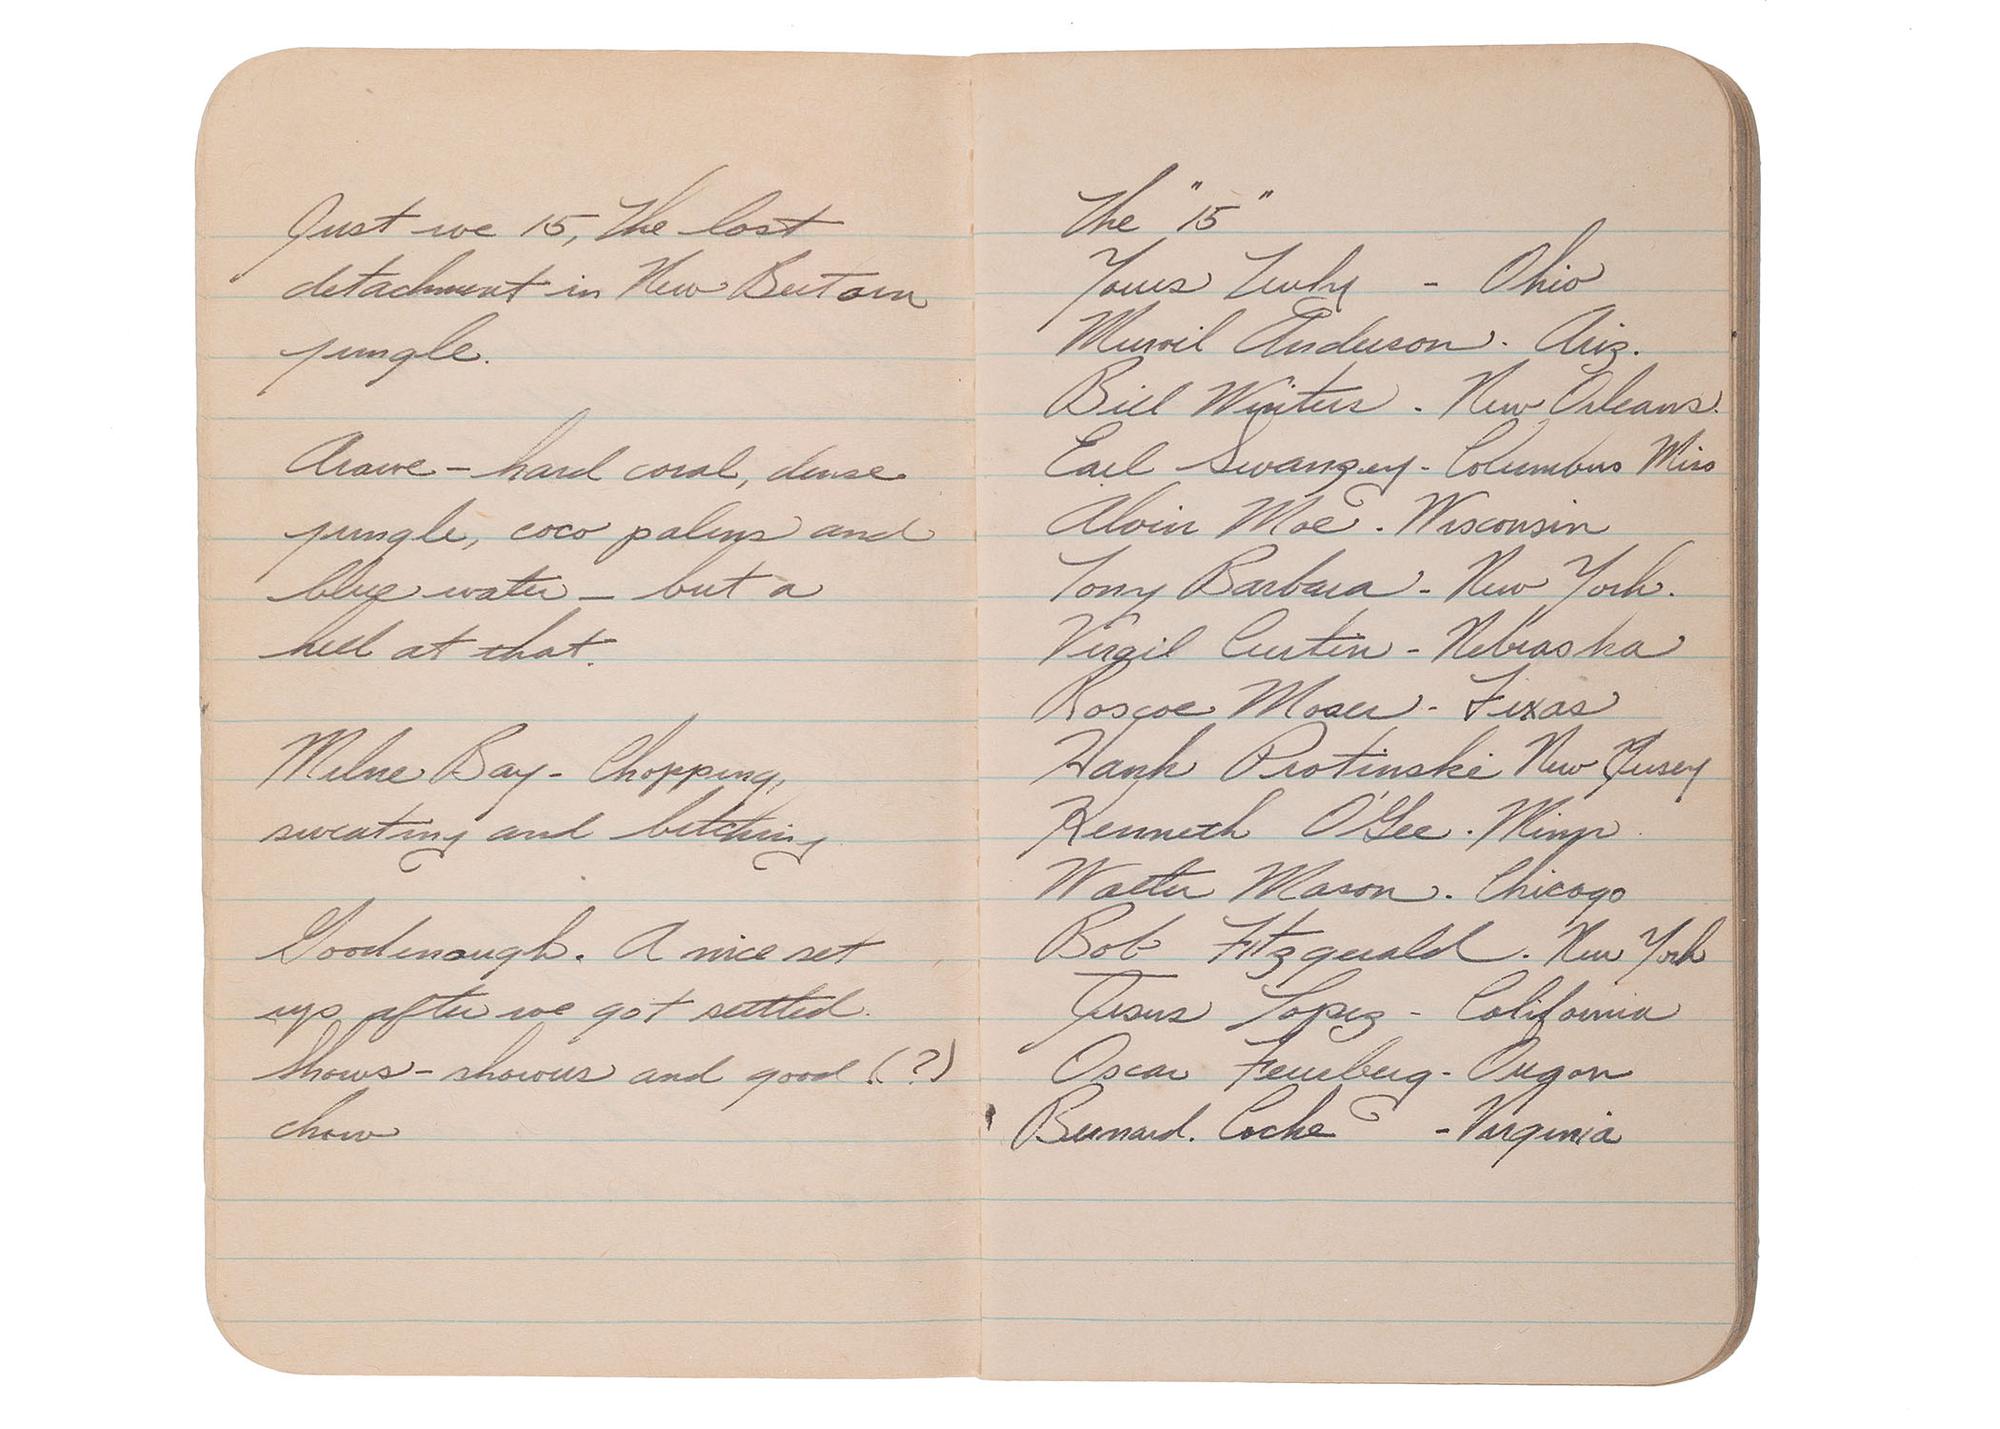 Just we 15, The lost
detachment in New Britain
jungle.
Arawe - hard coral, dense
jungle, coco palms and
blue water - but a
hell at that.
Milne Bay - Chopping,
sweating and bitching
Goodenough. A nice set
up after we got settled.
Shows - showers and good (?)
chow
The "15"
Yours Truly - Ohio
Murvil Anderson. Ariz.
Bill Winters. New Orleans.
Earl Swanzey - Columbus Miss
Alvin Moe. Wisconsin
Tony Barbara - New York.
Virgil Curtin - Nebraska
Roscoe Moser - Texas
Hank Protinski New Jersey
Kenneth O'Gee. Minn
Walter Mason. Chicago
Bob Fitzgerald. New York
Jesus Lopez - California
Oscar Feurberg - Oregon
Bernard. Cocke - Virginia